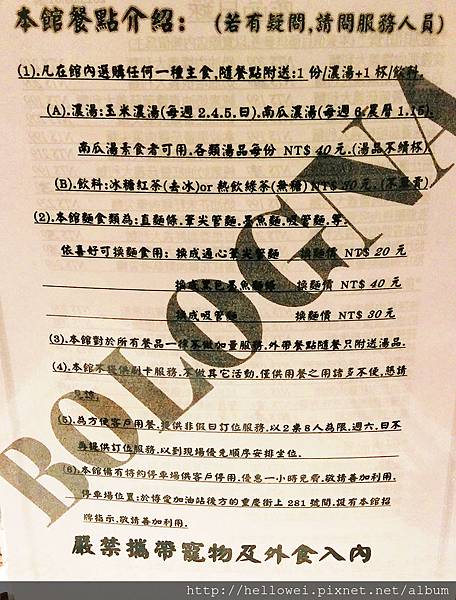 本館餐點介紹: (若有疑問,請問服務人員)
(1).凡在館內選購任何一種主食,隨餐點附送:1份/濃湯+1杯/飲料.
(A).濃湯:玉米濃湯(每週2.4.5.日).南瓜濃湯(每週6農曆1.15).
南瓜湯素食者可用.各類湯品每份 NT$ 40元.(湯品不續杯).
(B).飲料:冰糖紅茶(去冰)or熱飲綠茶(無糖)NT$ 30元.
(2).本館麵食類為:直麵條.筆尖管麵.墨魚麵.吸管麵.等.
依喜好可換麵食用: 換成通心筆尖管麵 換麵價 NT$ 20 元
換成黑色墨魚麵條 換麵價 NT$ 40 元
換成吸管麵 換麵價 NT$ 30元
(3).本館對於所有餐品一律不做加量服務.外帶餐點隨餐只附送湯品.
(4).本館不提供刷卡服務.不做其它活動.僅供用餐之用諸多不便,懇請
見諒.
(5).為方便客戶用餐.提供非假日訂位服務.以2桌8人為限.週六.日不
再提供訂位服務.以到現場優先順序安排坐位.
(6).本館備有特約停車場供客戶停用.優惠一小時免費.敬請善加利用.
停車場位置:於博愛加油站後方的重慶街上281號間.設有本館招
牌指示.敬請善加利用.
嚴禁攜帶寵物及外食入內
BOLOGNA
http://hellowei.pixnet.net/album